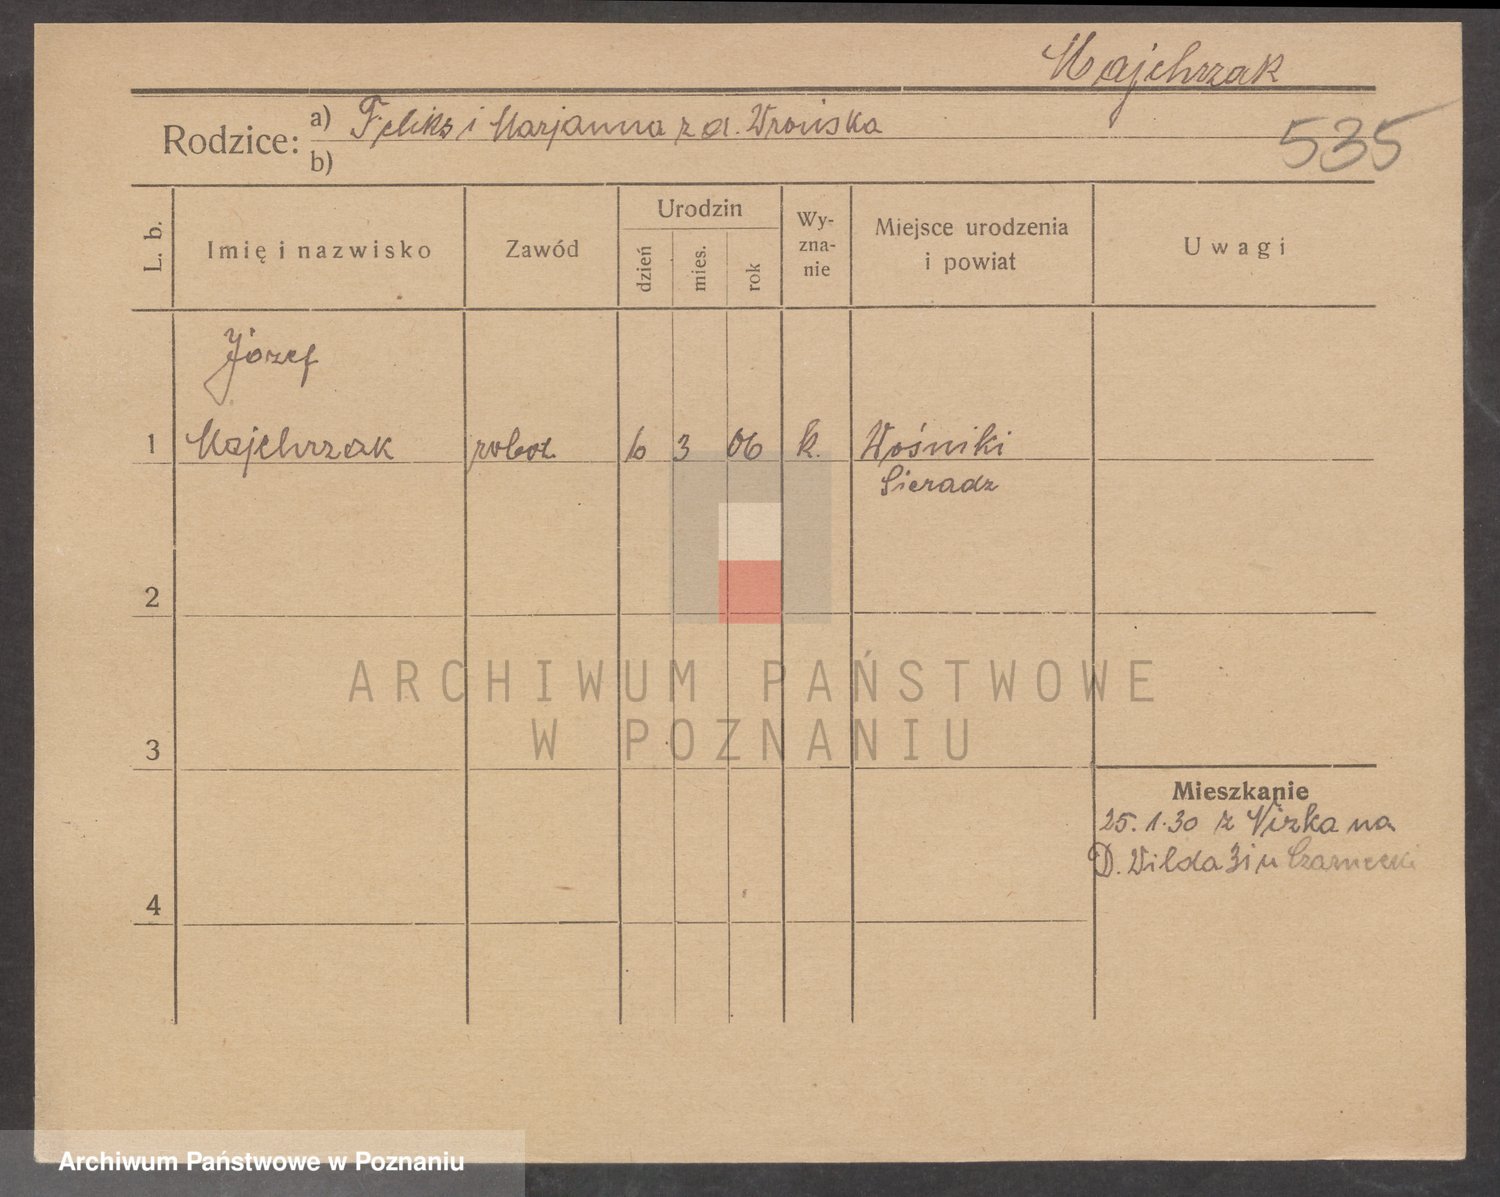 Majchrzak
Rodzice: a) Feliks i Marjanna z d. Wrońska
b)
535
L. b.
Imię i nazwisko
Zawód
Urodzin
dzień
mies.
rok
Wy-
zna-
nie
Miejsce urodzenia
i powiat
Uwagi
Józef
1 Majchrzak robot. 6 3 06 k. Wośniki
Sieradz
2
3
4
Mieszkanie
25. 1. 30 z na
D. Wilda 31 u Czarnecki
ARCHIWUM PAŃSTWOWE
W POZNANIU
Archiwum Państwowe w Poznaniu